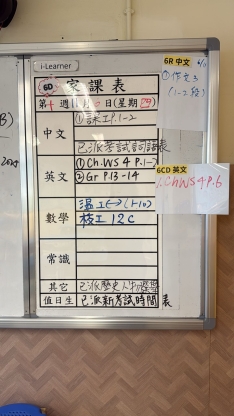 i-Learner
6D 家課表
第十週11月 日(星期四)
中文
①課工P.1-2
已派考試範疇表
英文
①Ch.WS 4 P.1-
②Gr P.13-14
數學
溫工(一)(1-10)
核工12C
常識
其它
已派歷史人物獎學
值日生
已派新考試時間表
6R 中文
①作文3
(1-2段)
6CD 英文
1.Ch WS 4 P.6